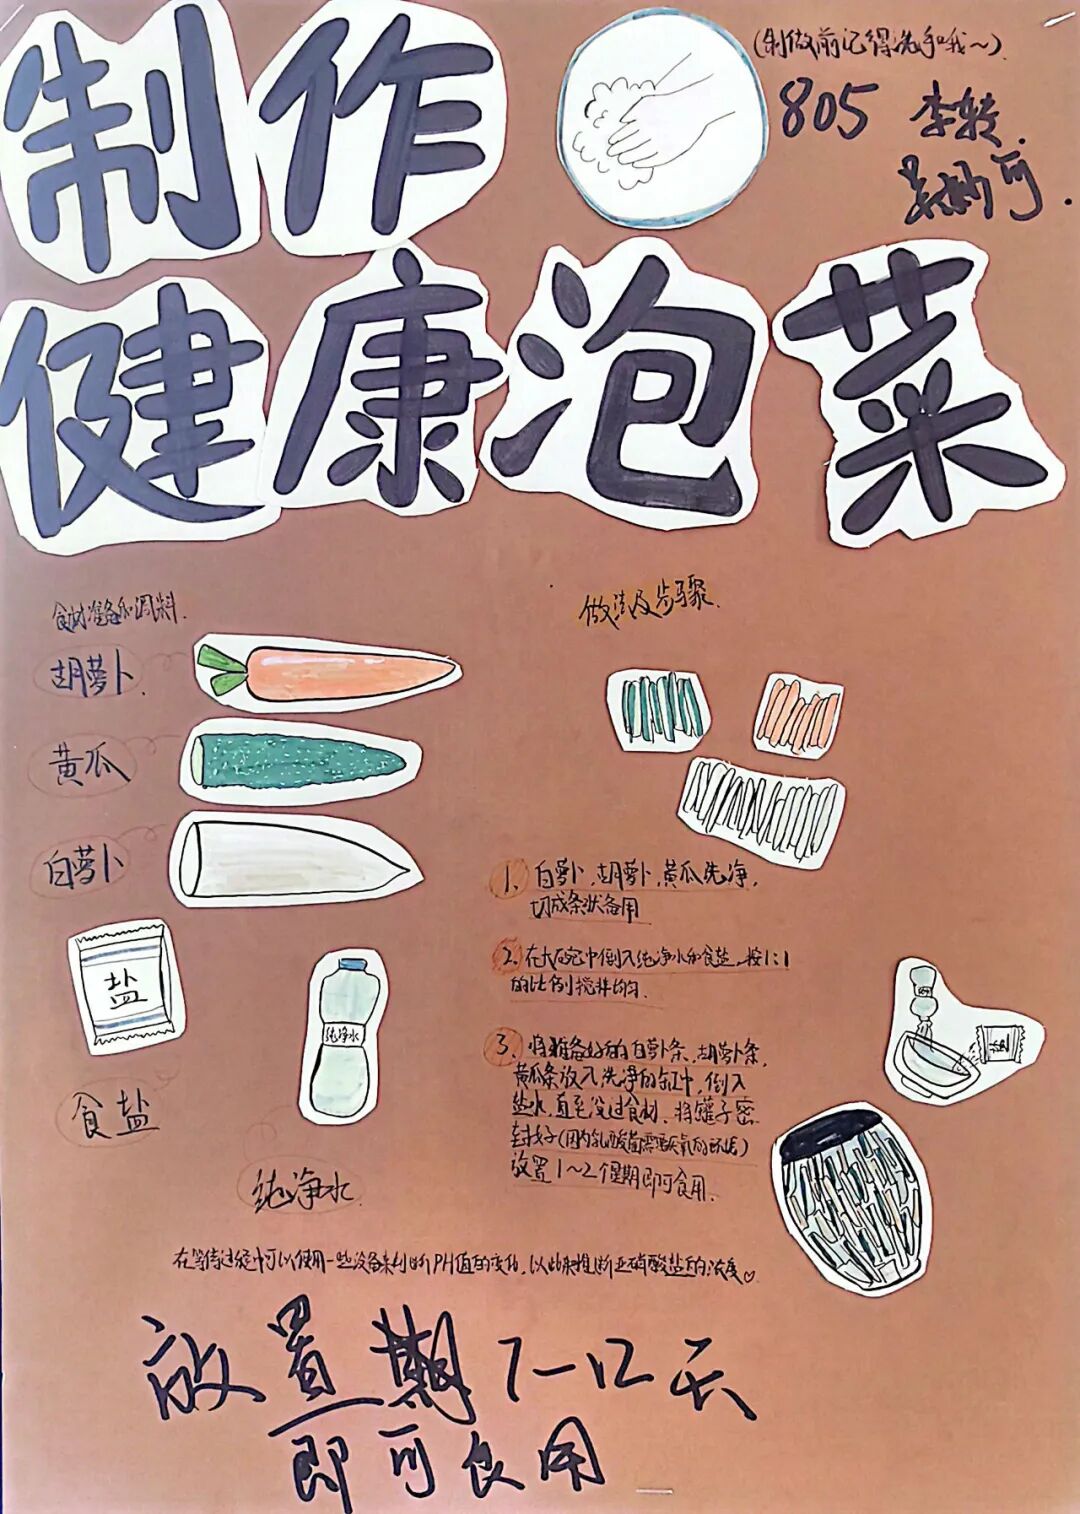 制作
(制做前记得洗手哦~)
805 李转
吴灿可
健康泡菜
食材准备和调料
胡萝卜
黄瓜
白萝卜
盐
食盐
纯净水
纯净水
做法及步骤
1、白萝卜,胡萝卜,黄瓜洗净,
切成条状备用
2、在大碗中倒入纯净水和食盐,按1:1
的比例搅拌均匀.
3、将准备好的白萝卜条,胡萝卜条,
黄瓜条放入洗净的缸中,倒入
盐水,直至没过食材,将罐子密
封好(因为乳酸菌需要厌氧的环境)
放置1~2个星期即可食用.
盐
在等待过程中可以使用一些设备来判断PH值的变化,以此来推断亚硝酸盐的浓度♡
放置期7-12天
即可食用